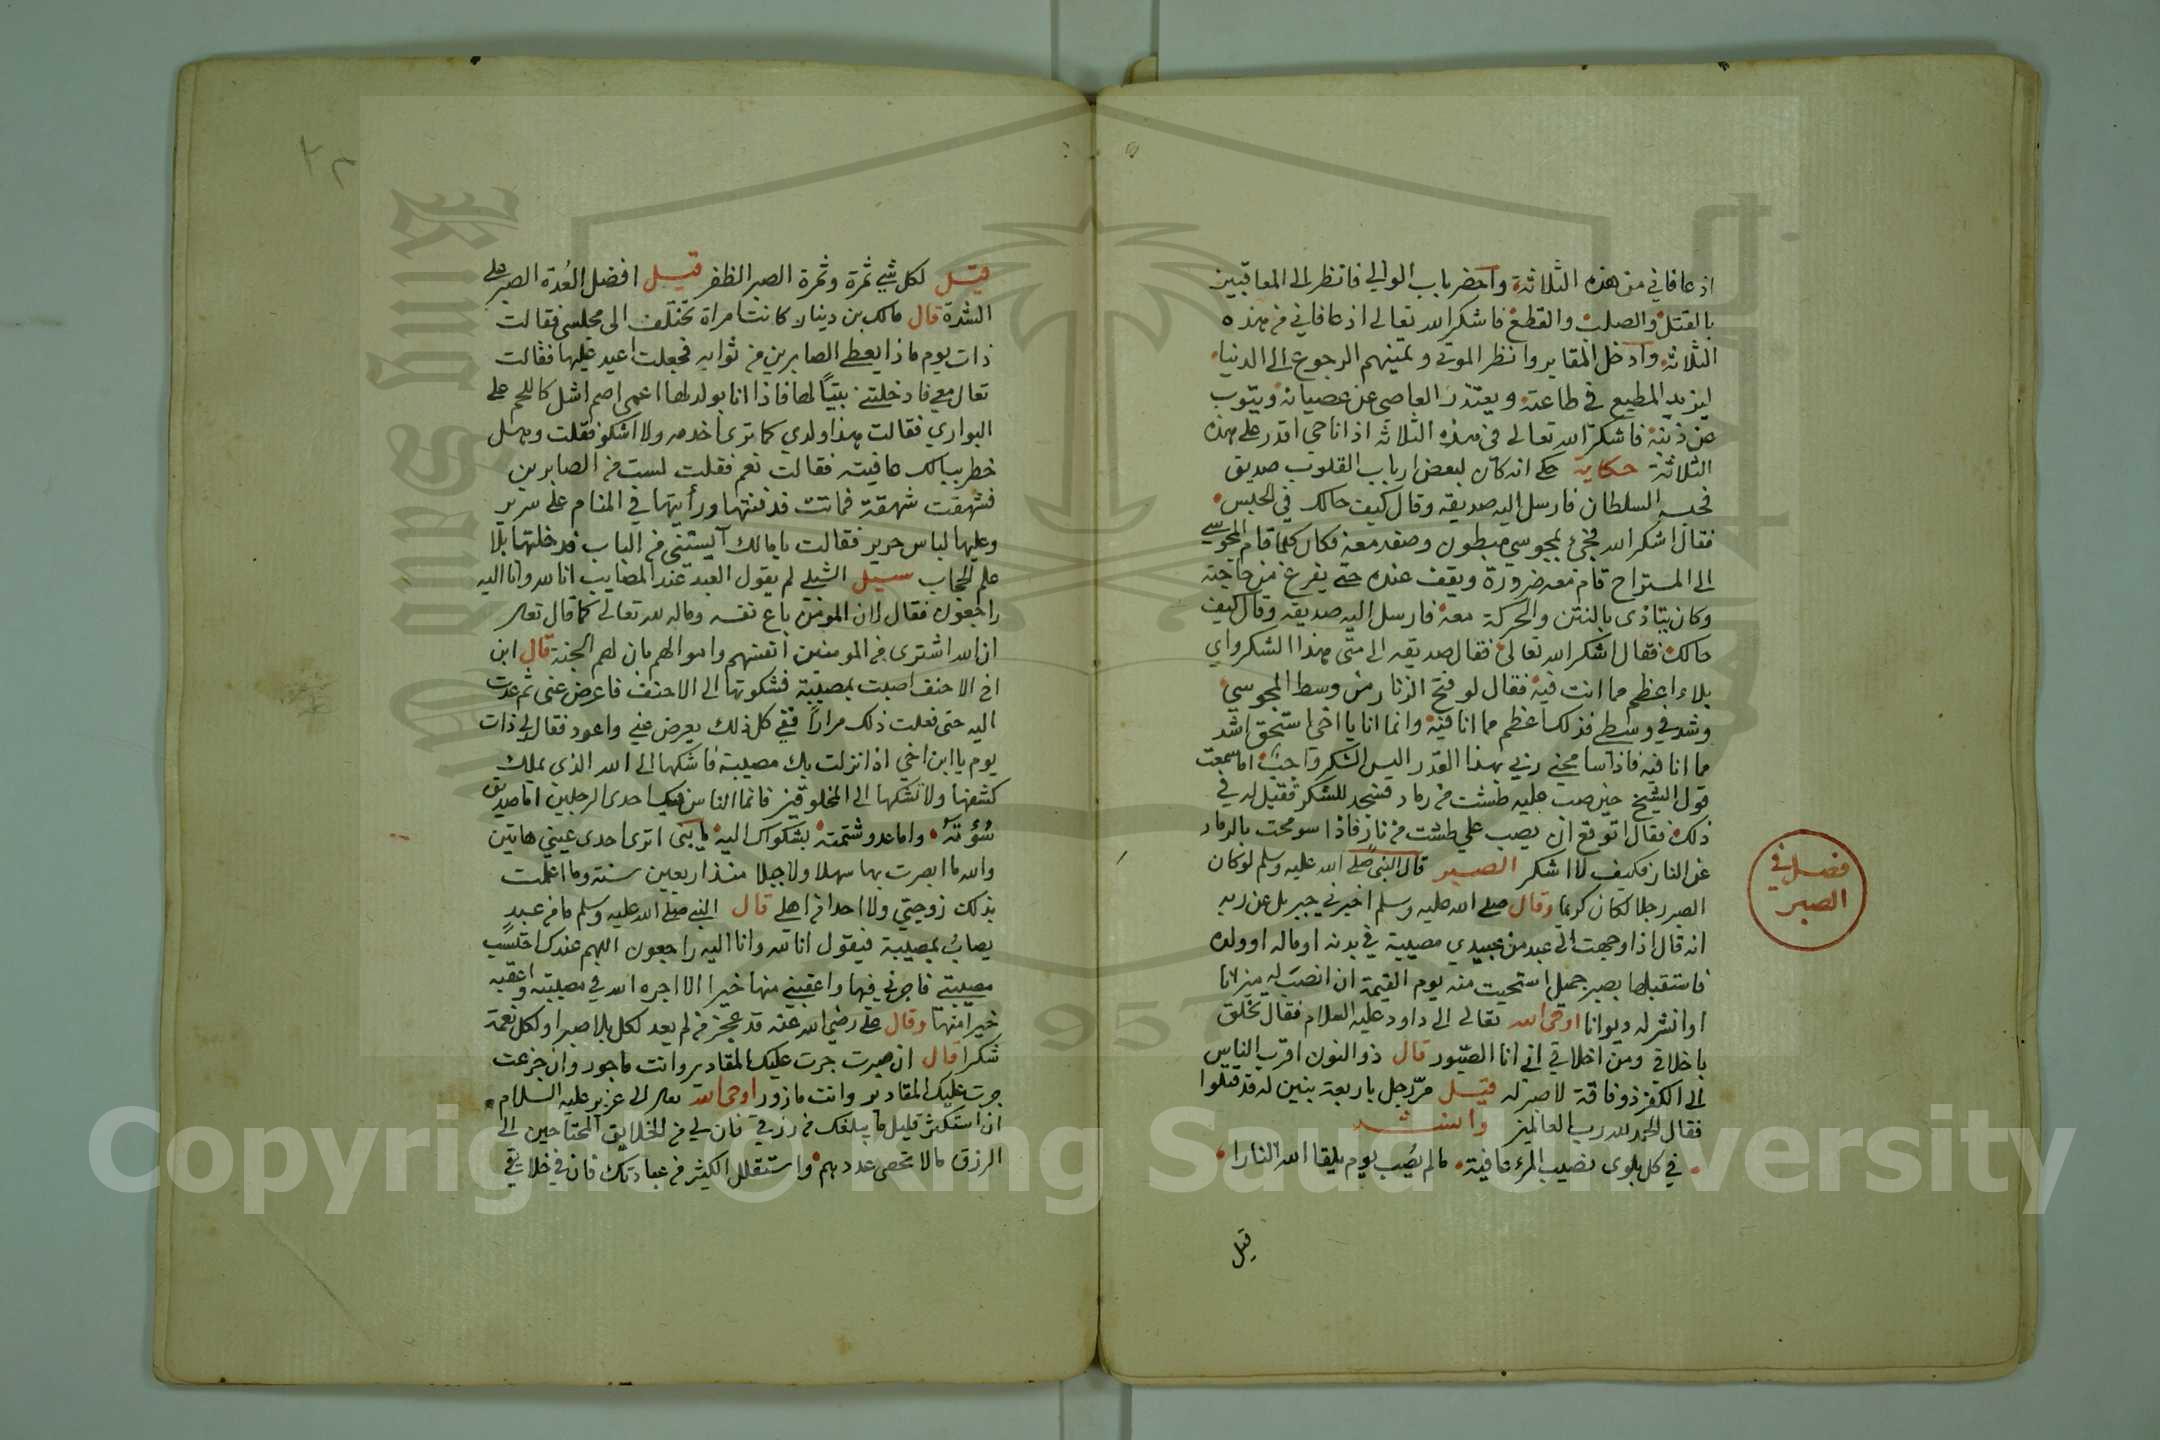 اذ عافاني من هذه الثلاثة واحضر باب الوالي فانظر الى المعاقبين
بالقتل والصلب والقطع فاشكر الله تعالى اذ عافاني من هذه
الثلاثة وادخل المقابر وانظر الموتى وتمنيهم الرجوع الى الدنيا
ليزيد المطيع في طاعته ويعتذر العاصي عن عصيانه ويتوب
عن ذنبه فاشكر الله تعالى في هذه الثلاثة اذ انا حي اقدر على هذه
الثلاثة حكاية حكي انه كان لبعض ارباب القلوب صديق
فحبسه السلطان فارسل اليه صديقه وقال كيف حالك في الحبس
فقال اشكر الله فجيء بمجوسي مبطون وصفد معه فكان كلما قام المجوسي
الى المستراح قام معه ضرورة ويقف عنده حتى يفرغ من حاجته
وكان يتاذى بالنتن والحركة معه فارسل اليه صديقه وقال كيف
حالك فقال اشكر الله تعالى فقال صديقه الى متى هذا الشكر واي
بلاء اعظم مما انت فيه فقال لو فتح الزنار من وسط المجوسي
وشد في وسطي فذلك اعظم مما انا فيه وانما انا يا اخي استحق اشد
مما انا فيه فاذا سامحني ربي بهذا القدر اليس الشكر واجب اما سمعت
قول الشيخ حين صب عليه طشت من رماد فسجد للشكر فقيل له في
ذلك فقال اتوقع ان يصب علي طشت من نار فاذا سومحت بالرماد
عن النار فكيف لا اشكر الصبر قال النبي صلى الله عليه وسلم لو كان
فصل في
الصبر
الصبر رجلا لكان كريما وقال صلى الله عليه وسلم اخبرني جبريل عن ربه
انه قال اذا وجهت الى عبد من عبيدي مصيبة في بدنه او ماله او ولده
فاستقبلها بصبر جميل استحييت منه يوم القيمة ان انصب له ميزانا
او انشر له ديوانا اوحى الله تعالى الى داود عليه السلام فقال تخلق
باخلاقي ومن اخلاقي اني انا الصبور قال ذو النون اقرب الناس
الى الكفر ذو فاقة لا صبر له قيل مر رجل باربعة بنين له قد قتلوا
فقال الحمد لله رب العالمين وانشد
في كل بلوى تصيب المرء عافية ما لم يصب يوم يلقا الله النارا
قيل
قيل لكل شي ثمرة وثمرة الصبر الظفر قيل افضل العدة الصبر على
الشدة قال مالك بن دينار كانت امراة تختلف الى مجلسي فقالت
ذات يوم ماذا يعطي الصابرين من ثوابه فجعلت اعيد عليها فقالت
تعال معي فادخلتني بيتا لها فاذا انا بولد لها اعمى اصم اشل كاللحم على
البواري فقالت هذا ولدي كما ترى اخدمه ولا اشكو فقلت وهل
خطر ببالك عافيته فقالت نعم فقلت لست من الصابرين
فشهقت شهقة فماتت فدفنتها ورأيتها في المنام على سرير
وعليها لباس حرير فقالت يا مالك آيستني من الباب فدخلتها بلا
علم الحجاب سيل الشبلي لم يقول العبد عند المصايب انا لله وانا اليه
راجعون فقال لان المومن باع نفسه وماله لله تعالى كما قال تعالى
ان الله اشترى من المومنين انفسهم واموالهم بان لهم الجنة قال ابن
اخي الاحنف اصبت بمصيبة فشكوتها الى الاحنف فاعرض عني ثم عدت
اليه حتى فعلت ذلك مرارا ففي كل ذلك يعرض عني واعود فقال لي ذات
يوم يا ابن اخي اذا نزلت بك مصيبة فاشكها الى الله الذي يملك
كشفها ولا تشكها الى المخلوقين فانما الناس احدى الرجلين اما صديق
سؤته واما عدو شتمته بشكواك اليه يا بني اترى احدى عيني هاتين
والله ما ابصرت بها سهلا ولا جبلا منذ اربعين سنة وما اعلمت
بذلك زوجتي ولا احدا من اهلي قال النبي صلى الله عليه وسلم ما من عبد
يصاب بمصيبة فيقول انا لله وانا اليه راجعون اللهم عندك احتسب
مصيبتي فاجرني فيها واعقبني منها خيرا الا اجره الله في مصيبته واعقبه
خيرا منها وقال علي رضي الله عنه قد عجز من لم يعد لكل بلا صبرا ولكل نعمة
شكرا قال ان صبرت جرت عليك المقادير وانت ماجور وان جزعت
جرت عليك المقادير وانت مازور اوحى الله تعالى الى عزير عليه السلام
ان استكثر قليل ما يبلغك من رزقي فان لي من الخلايق المحتاجين الى
الرزق ما لا تحصى عددهم واستقلل الكثير من عبادتك فان في خلايقي
Copyright © King Saud University